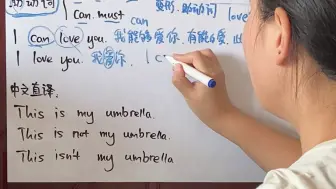 动词
Can. must can 变形, 助动词 love
I can love you. 我能够爱你. 有能力爱,
I love you. 我爱你. I c
中文直译:
This is my umbrella.
This is not my umbrella.
This isn't my umbrella